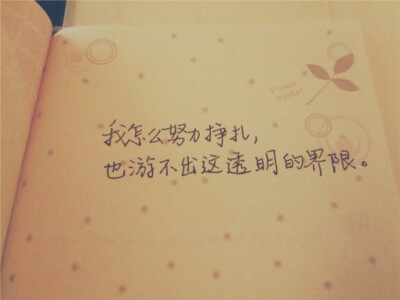 我怎么努力挣扎，
也游不出这透明的界限。